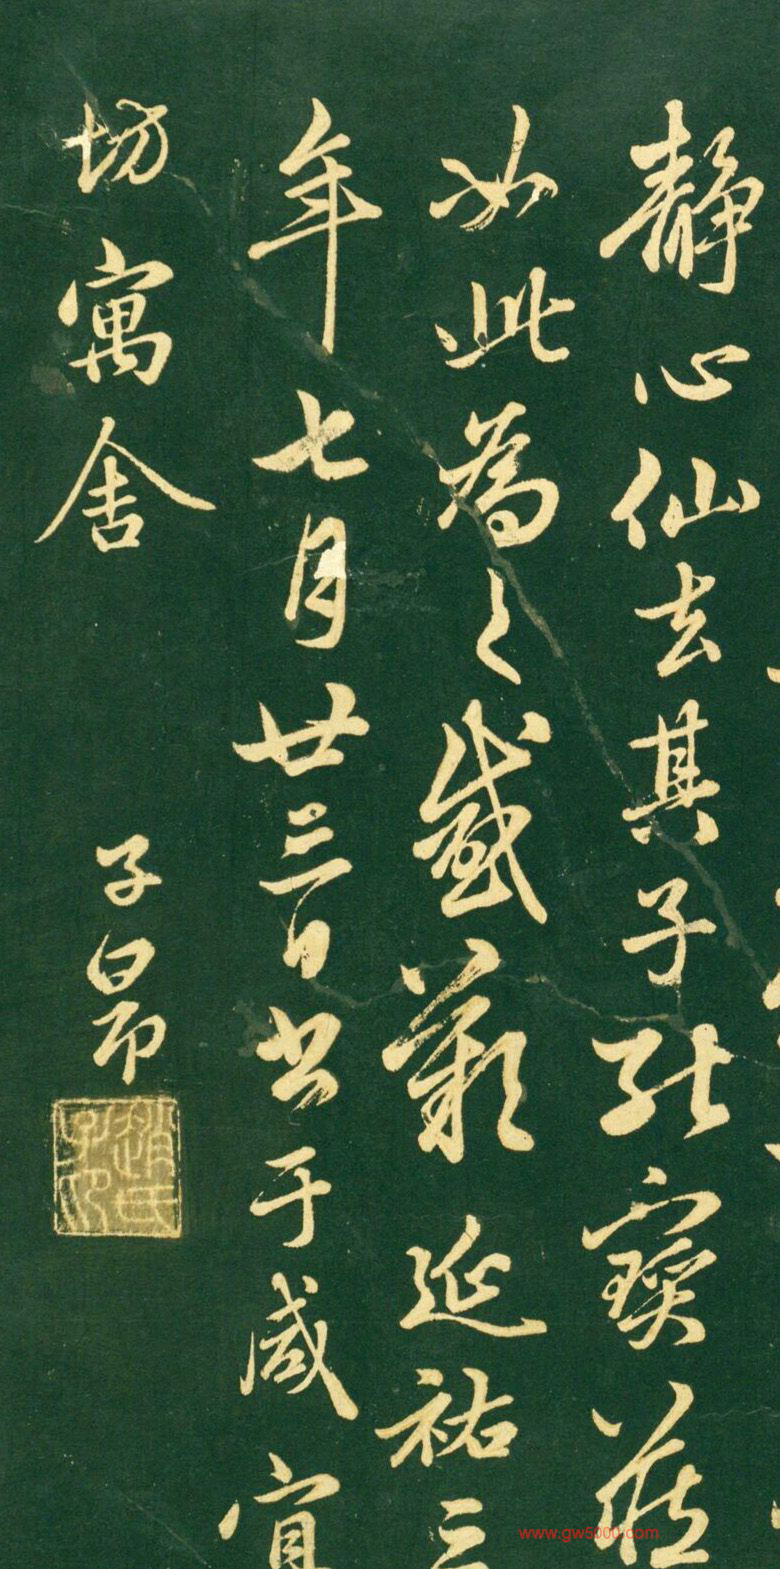 静心仙去其子能寶藏
如此為之感歎延祐三
年七月廿三日書于咸宜
坊寓舍
子昂
趙氏子昂
www.gw5000.com